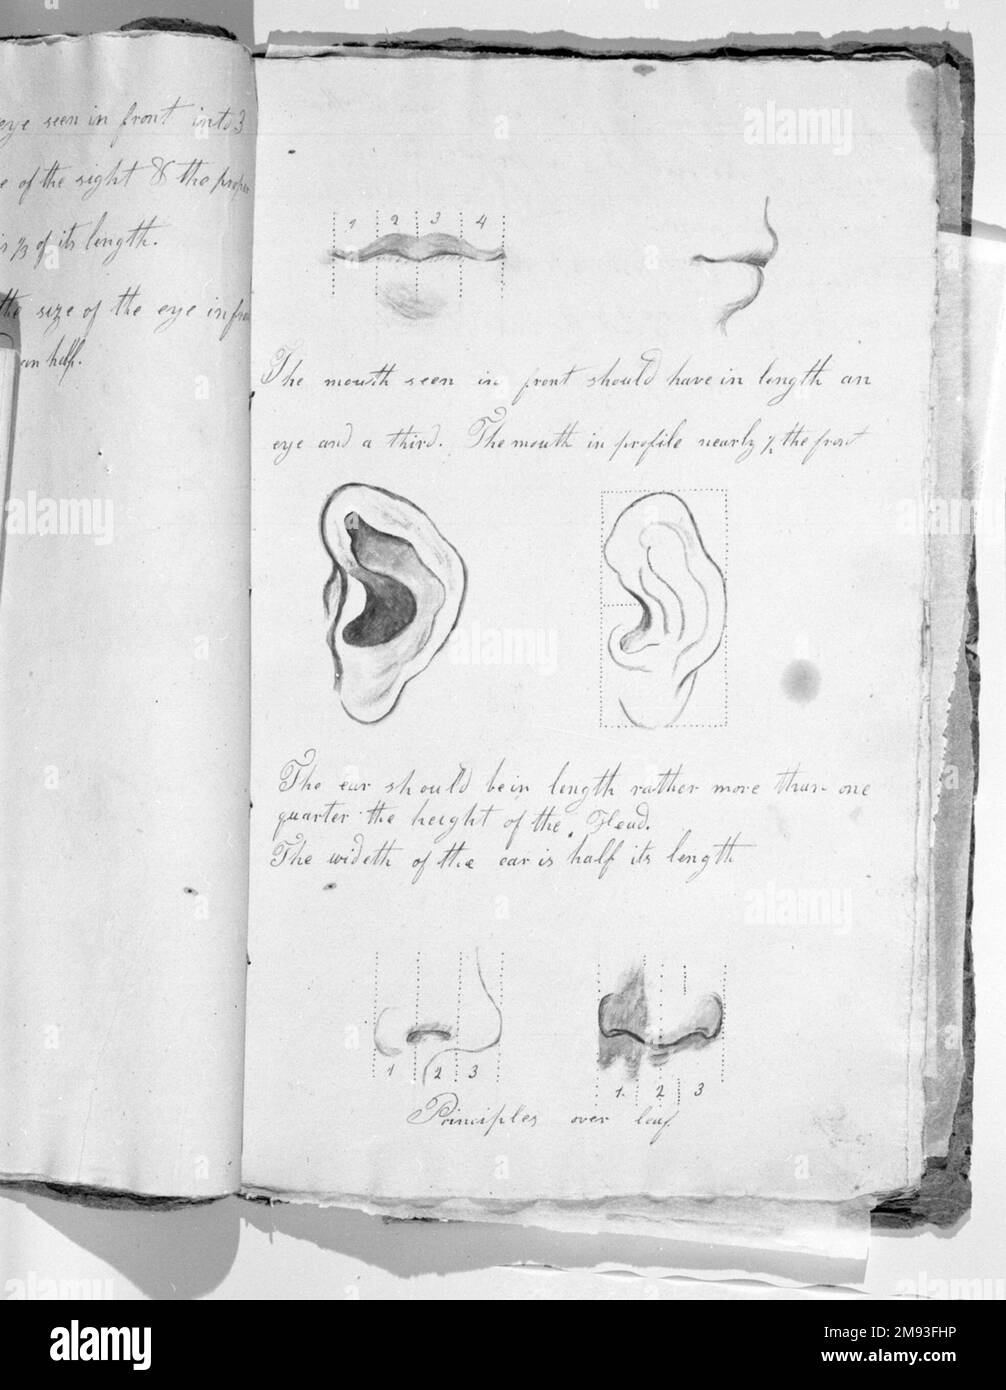 eye seen in front into 3
e of the sight & the proper
is 1/3 of its length.
the size of the eye in fro
an half.
1 2 3 4
The mouth seen in front should have in length an
eye and a third. The mouth in profile nearly ½ the front
The ear should be in length rather more than one
quarter the height of the Head.
The wideth of the ear is half its length
1 2 3
1. 2 3
Principles over leaf
alamy
Image ID: 2M93FHP
www.alamy.com